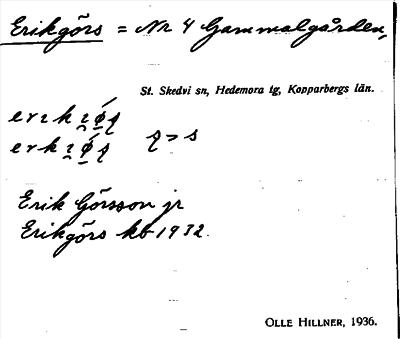 Erikgörs = Nr 4 Gammalgården,
St. Skedvi sn, Hedemora tg, Kopparbergs län.
Erik Görsson jr
Erikgörs kb 1932.
OLLE HILLNER, 1936.